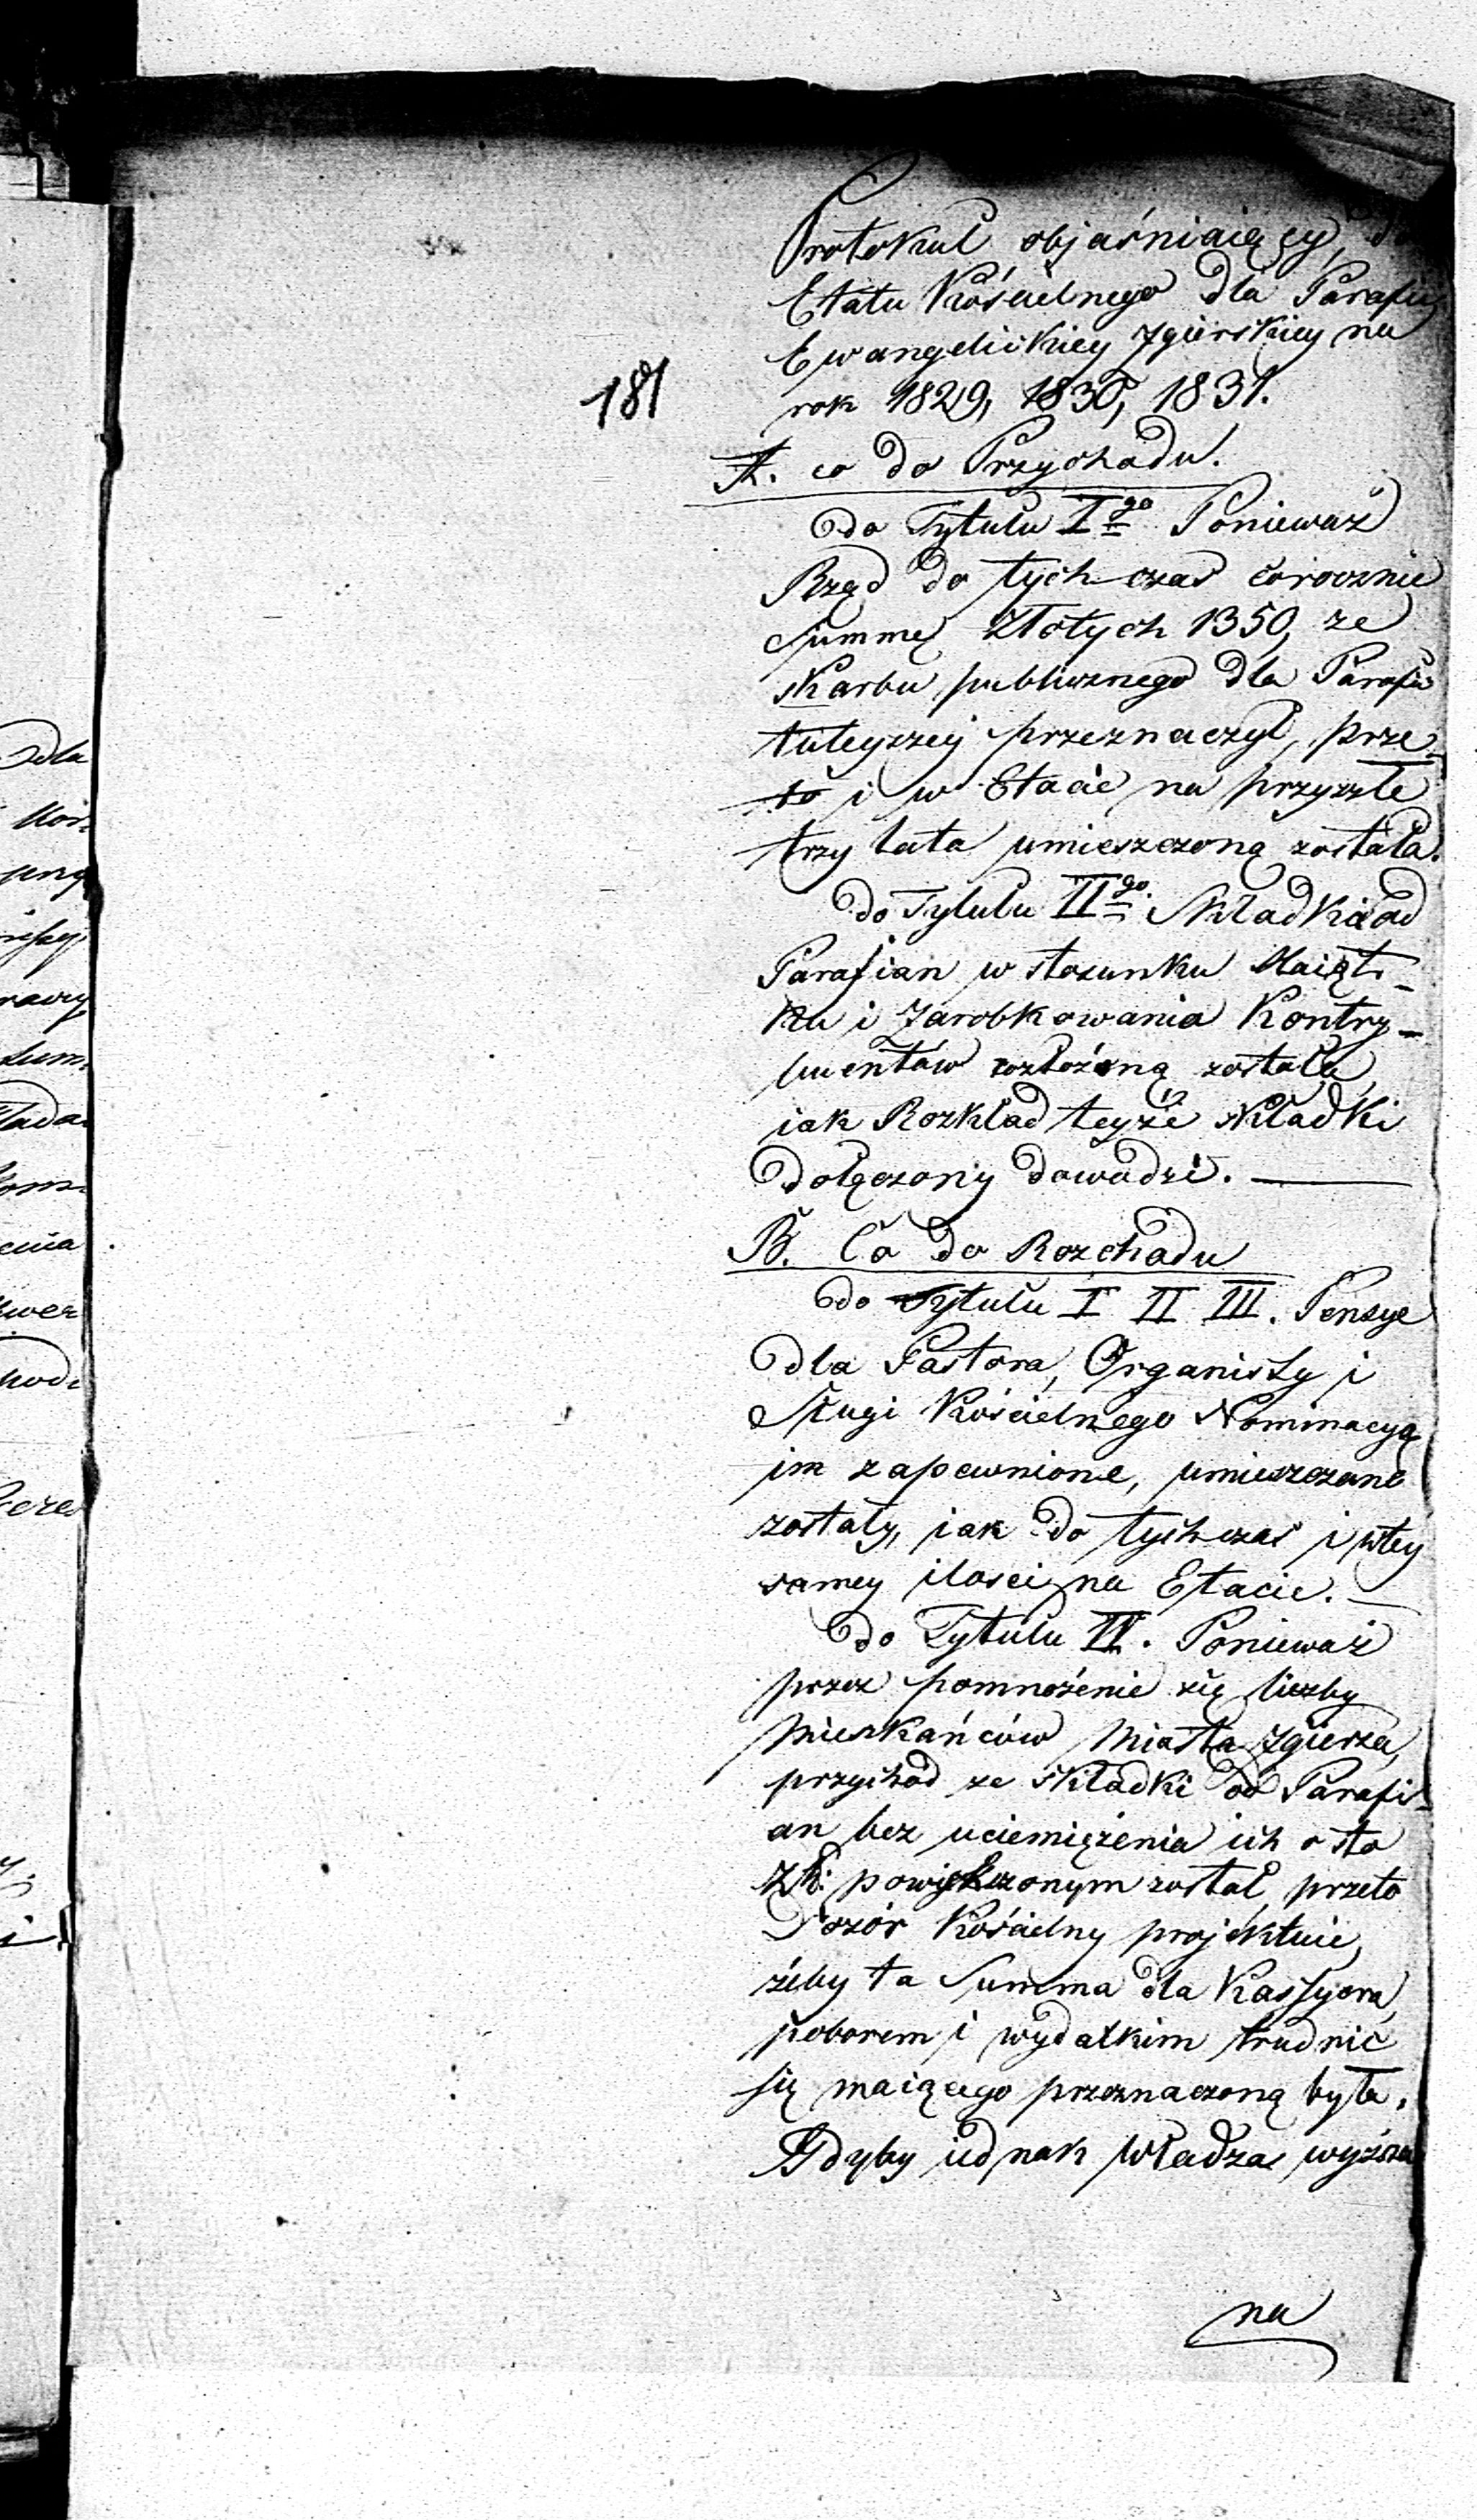 Protokul objaśniaiący, do
Etatu Kościelnego dla Parafii
Ewangelickiey Zgierskiey na
rok 1829, 1830, 1831.
181
A. co do Przychodu.
do Tytulu Igo Ponieważ
Rząd do tych czas corocznie
Summę Złotych 1350, ze
Skarbu publicznego dla Parafii
tuteyszey przeznaczył, prze-
to i w Etacie na przyszłe
trzy lata umieszczoną została.
do Tytulu IIgo. Składka od
Parafian w stosunku Maiąt-
ku i Zarobkowania Kontry-
buentów rozłożoną została
iak Rozkład teyże składki
dołączony dowodzi.
B. Co do Rozchodu
do Tytulu I II III. Pensye
dla Pastora, Organisty i
Sługi Kościelnego Nominacyą
im zapewnione, umieszczone
zostały, iak do tychczas i wtey
samey ilości na Etacie.
do Tytulu IV. Ponieważ
przez pomnożenie się liczby
Mieszkańców Miasta Zgierza,
przychód ze składki od Parafi-
an bez uciemiężenia ich o sto
Zł: powiększonym został, przeto
Dozór Kościelny projektuie,
żeby ta Summa dla Kassyera,
poborem i wydatkim trudnić
się maiącego przeznaczoną była.
Gdyby iednak Władza wyższa
na
dla
pną
rawy
sum.